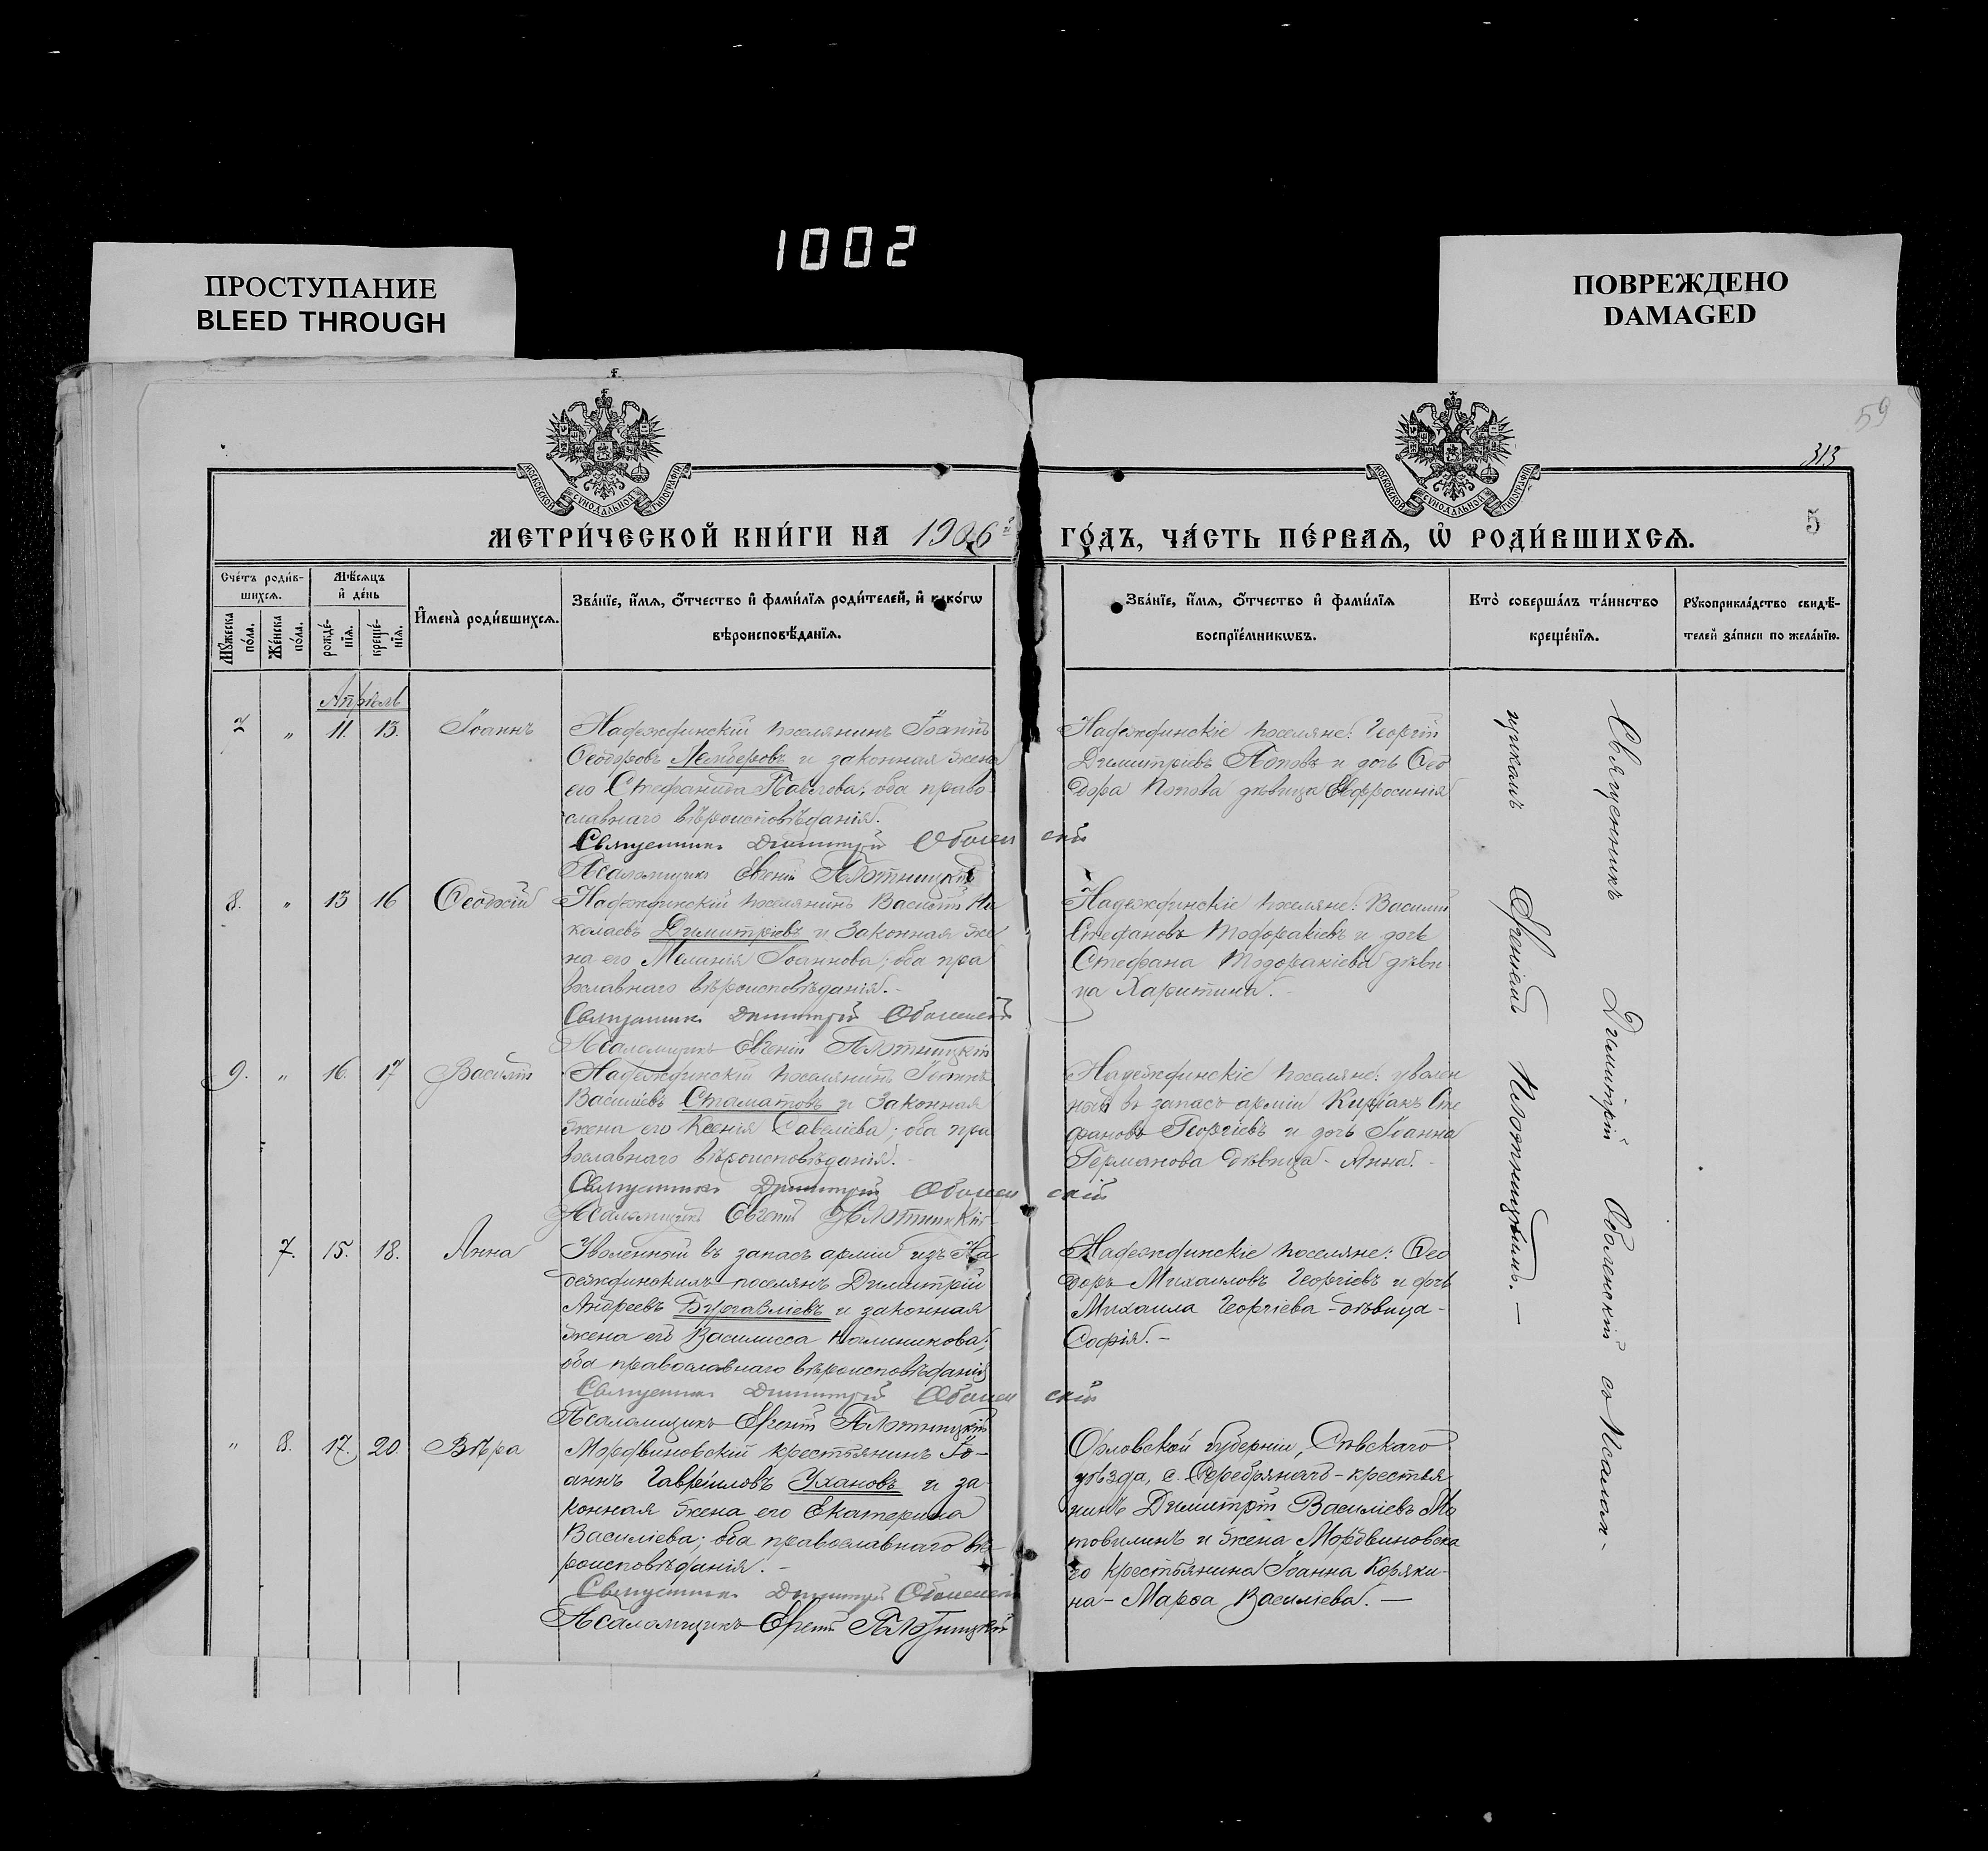 1002
ПРОСТУПАНИЕ
BLEED THROUGH
ПОВРЕЖДЕНО
DAMAGED
59
313
5
МОСКОВСКОЙ СУНОДАЛЬНОЙ ТИПОГРАФІИ
МОСКОВСКОЙ СУНОДАЛЬНОЙ ТИПОГРАФІИ
МЕТРИ́ЧЕСКОЙ КНИ́ГИ НА 1906й
ГО́ДЪ, ЧА́СТЬ ПЕ́РВАѦ, Ѡ҆ РОДИ́ВШИХСѦ.
Сче́тъ роди́в-
шихсѧ.
Мꙋ́жеска по́ла.
Же́нска по́ла.
Мѣ́сѧцъ
и҆ де́нь
рожде́-
нїѧ.
креще́-
нїѧ.
И҆мена̀ роди́вшихсѧ.
Зва́нїе, и҆́мѧ, ѻ҆́тчество и҆ фами́лїѧ роди́телей, и҆ како́гѡ
вѣроисповѣ́данїѧ.
Зва́нїе, и҆́мѧ, ѻ҆́тчество и҆ фами́лїѧ
воспрїе́мникѡвъ.
Кто̀ соверша́лъ та́инство
креще́нїѧ.
Рꙋкоприкла́дство свидѣ́-
телей за́писи по жела́нїю.
Апрѣль
7 " 11. 13. Іоаннъ
Надеждинскій поселянинъ Іоаннъ
Ѳеодоровъ и законная жена
его Стефанида Павлова; оба право-
славнаго вѣроисповѣданія.
Священникъ Димитрій Оболенскій
Псаломщикъ Евгеній Плотницкій
Надеждинскіе поселяне: Георгій
Димитріевъ Поповъ и дочь Ѳео
дора Попова дѣвица Евфросинія
8. " 13 16 Ѳеодосій
Надеждинскій поселянинъ Василій Ни
колаевъ Димитріевъ и законная же
на его Меланія Іоаннова; оба пра
вославнаго вѣроисповѣданія.-
Священникъ Димитрій Оболенскій
Псаломщикъ Евгеній Плотницкій
Надеждинскіе поселяне: Василій
Стефановъ Тодоракіевъ и дочь
Стефана Тодоракіева дѣви
ца Харитина.-
9. " 16. 17 Василій
Надеждинскій поселянинъ Іоаннъ
Василіевъ Стаматовъ и законная
жена его Ксенія Савеліева; оба пра
вославнаго вѣроисповѣданія.-
Священникъ Димитрій Оболенскій
Псаломщикъ Евгеній Плотницкій
Надеждинскіе поселяне: уволен
ный въ запасъ арміи Киріакъ Сте
фановъ Георгіевъ и дочь Іоанна
Германова дѣвица - Анна.-
7. 15. 18. Анна
Уволенный въ запасъ арміи изъ На
деждинскихъ поселянъ Димитрій
Андреевъ и законная
жена его Василисса Калиникова;
оба православнаго вѣроисповѣданія
Священникъ Димитрій Оболенскій
Псаломщикъ Евгеній Плотницкій
Надеждинскіе поселяне: Ѳео
доръ Михаиловъ Георгіевъ и дочь
Михаила Георгіева - дѣвица -
Софія.-
" 8. 17. 20 Вѣра
Мордвиновскій крестьянинъ Іо-
аннъ Гавріиловъ Ухановъ и за
конная жена его Екатерина
Василіева; оба православнаго вѣ-
роисповѣданія.-
Священникъ Димитрій Оболенскій
Псаломщикъ Евгеній Плотницкій
Орловской губерніи, Сѣвскаго
уѣзда, с. Серебрянаго - крестья
нинъ Димитрій Василіевъ Мо
товилинъ и жена Мордвиновска
го крестьянина Іоанна Коряки-
на - Марѳа Василіева.-
Священникъ Димитрій Оболенскій съ Псалом-
щикомъ Евгеніемъ Плотницкимъ.-